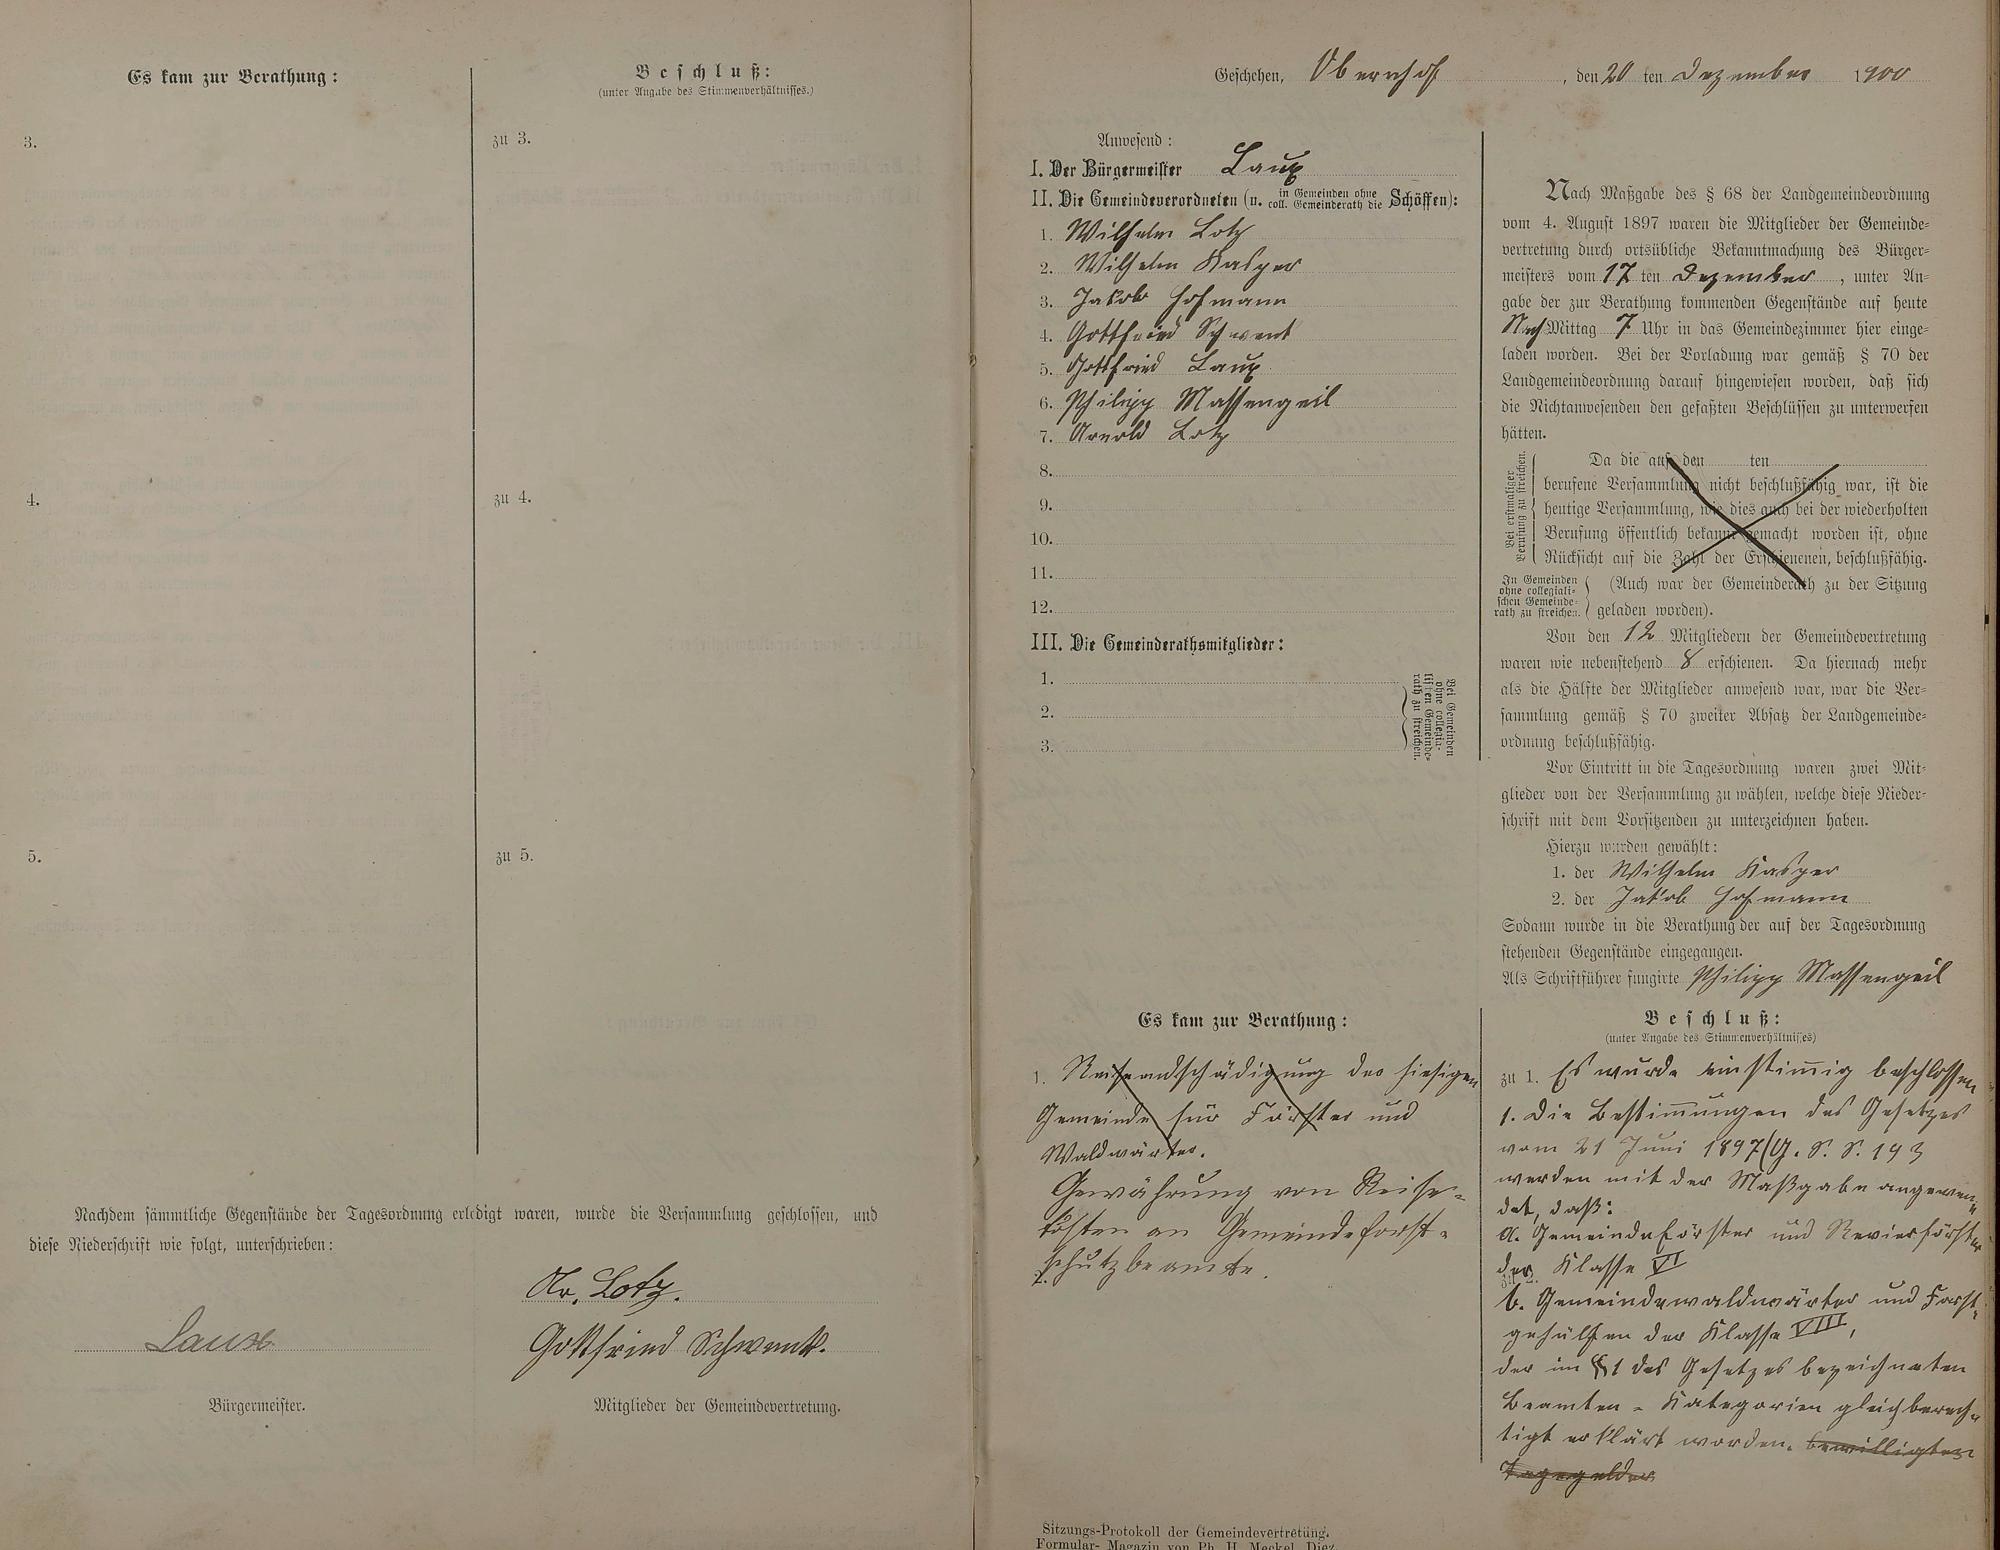 Es kam zur Berathung:
Beschluß:
(unter Angabe des Stimmenverhältnisses.)
3.
zu 3.
4.
zu 4.
5.
zu 5.
Nachdem sämmtliche Gegenstände der Tagesordnung erledigt waren, wurde die Versammlung geschlossen, und
diese Niederschrift wie folgt, unterschrieben:
Ar. Lotz.
Laux
Gottfried Schwenk.
Bürgermeister.
Mitglieder der Gemeindevertretung.
Geschehen, Obernhof, den 20 ten Dezember 1900
Anwesend:
I. Der Bürgermeister Laux
II. Die Gemeindeverordneten (u. in Gemeinden ohne coll. Gemeinderath die Schöffen):
1. Wilhelm Lotz
2. Wilhelm Kasper
3. Jakob Hofmann
4. Gottfried Schwenk
5. Gottfried Laux
6. Philipp Massengeil
7. Arnold Lotz
8.
9.
10.
11.
12.
III. Die Gemeinderathsmitglieder:
1.
2.
3.
Bei Gemeinden
ohne collegia-
lischen Gemeinde-
rath zu streichen.
Nach Maßgabe des § 68 der Landgemeindeordnung
vom 4. August 1897 waren die Mitglieder der Gemeinde-
vertretung durch ortsübliche Bekanntmachung des Bürger-
meisters vom 17 ten Dezember, unter An-
gabe der zur Berathung kommenden Gegenstände auf heute
Nach Mittag 7 Uhr in das Gemeindezimmer hier einge-
laden worden. Bei der Vorladung war gemäß § 70 der
Landgemeindeordnung darauf hingewiesen worden, daß sich
die Nichtanwesenden den gefaßten Beschlüssen zu unterwerfen
hätten.
Bei erstmaliger
Berufung zu streichen.
Da die auf den ten
berufene Versammlung nicht beschlußfähig war, ist die
heutige Versammlung, wie dies auch bei der wiederholten
Berufung öffentlich bekannt gemacht worden ist, ohne
Rücksicht auf die Zahl der Erschienenen, beschlußfähig.
In Gemeinden
ohne collegiali-
schen Gemeinde-
rath zu streichen.
(Auch war der Gemeinderath zu der Sitzung
geladen worden).
Von den 12 Mitgliedern der Gemeindevertretung
waren wie nebenstehend 8 erschienen. Da hiernach mehr
als die Hälfte der Mitglieder anwesend war, war die Ver-
sammlung gemäß § 70 zweiter Absatz der Landgemeinde-
ordnung beschlußfähig.
Vor Eintritt in die Tagesordnung waren zwei Mit-
glieder von der Versammlung zu wählen, welche diese Nieder-
schrift mit dem Vorsitzenden zu unterzeichnen haben.
Hierzu wurden gewählt:
1. der Wilhelm Kasper
2. der Jakob Hofmann
Sodann wurde in die Berathung der auf der Tagesordnung
stehenden Gegenstände eingegangen.
Als Schriftführer fungirte Philipp Massengeil
Es kam zur Berathung:
1. Reiseentschädigung der hiesigen
Gemeinde für Förster und
Waldwärter.
Gewährung von Reise-
kosten an Gemeindeforst-
schutzbeamte.
2.
Beschluß:
(unter Angabe des Stimmenverhältnisses)
zu 1. Es wurde einstimig beschlossen
1. Die Bestimungen des Gesetzes
vom 21 Juni 1897 (G. S. S. 193
werden mit der Maßgabe angewen-
det, daß:
a. Gemeindeförster und Revierförster
der Klasse VI
zu 2.
b. Gemeindewaldwärter und Forst-
gehülfen der Klasse VIII,
der im § 1 des Gesetzes bezeichneten
Beamten-Kategorien gleichberech-
tigt erklärt worden. bewilligten
Tagegelder
Sitzungs-Protokoll der Gemeindevertretung.
Formular-Magazin von Ph. H. Meckel, Diez.